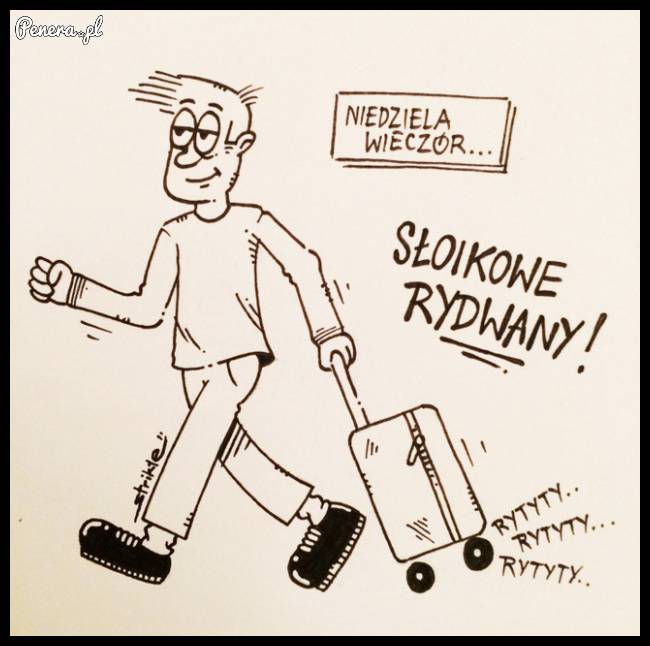 Penera.pl
NIEDZIELA
WIECZÓR...
SŁOIKOWE
RYDWANY!
strikte
RYTYTY..
RYTYTY...
RYTYTY..